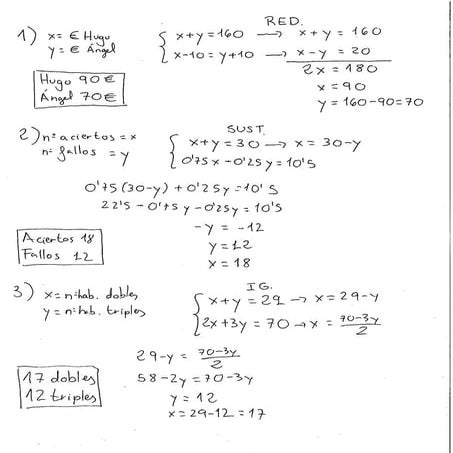 RED.
1) x = € Hugo
y = € Ángel
{ x+y=160 → x+y = 160
x-10=y+10 → x-y = 20
2x = 180
x = 90
y = 160-90=70
Hugo 90€
Ángel 70€
SUST.
2) nº aciertos = x
nº fallos = y
{ x+y=30 → x = 30-y
0'75x-0'25y=10'5
0'75(30-y)+0'25y=10'5
22'5-0'75y-0'25y=10'5
-y = -12
y=12
x = 18
Aciertos 18
Fallos 12
IG.
3) x = nº hab. dobles
y = nº hab. triples
{ x+y = 29 → x=29-y
2x+3y = 70 → x = 70-3y/2
29-y = 70-3y/2
58-2y=70-3y
y = 12
x=29-12=17
17 dobles
12 triples